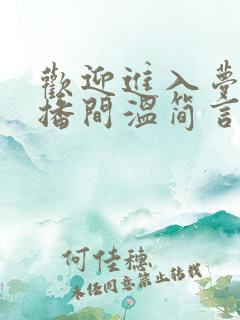 歡迎進入夢
播間溫簡言
何佳穗
未經同意禁止轉載